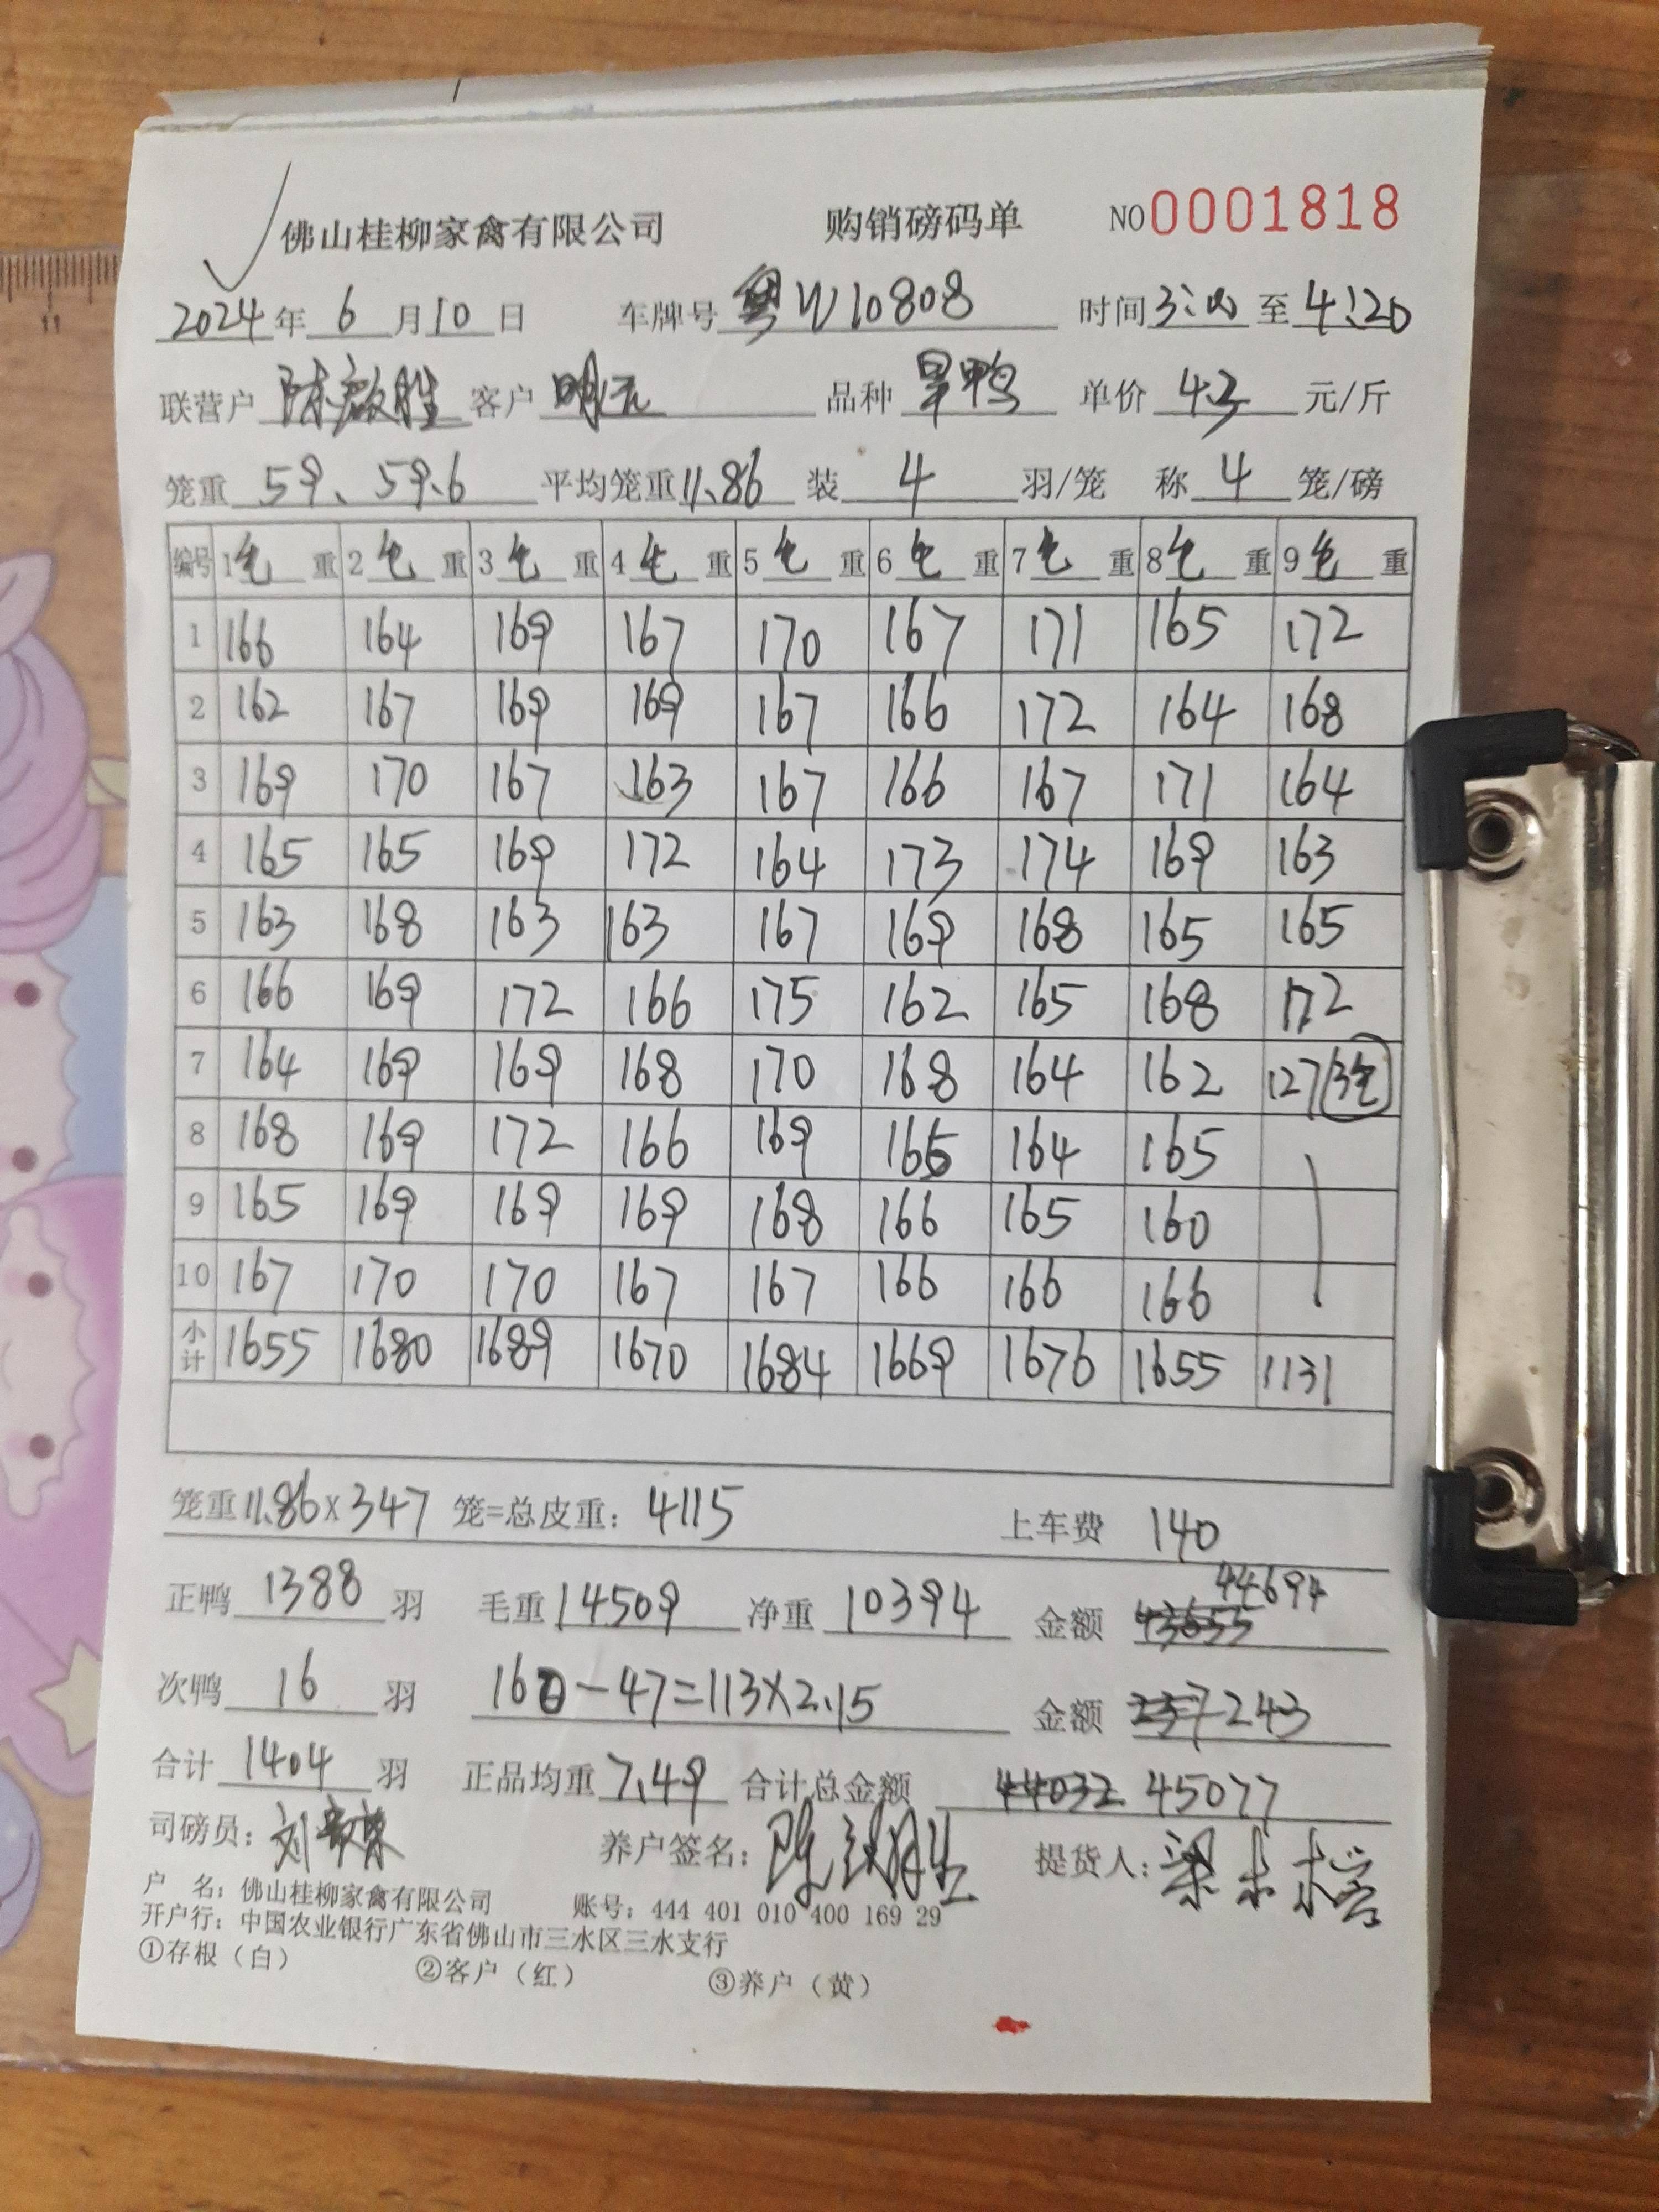 佛山桂柳家禽有限公司 购销磅码单 NO 0001818
2024年 6 月 10 日 车牌号 粤W10808 时间 3:00 至 4:20
联营户 陈啟胜 客户 明元 品种 旱鸭 单价 4.3 元/斤
笼重 59、59.6 平均笼重 11.86 装 4 羽/笼 称 4 笼/磅
编号 1毛重 2毛重 3毛重 4毛重 5毛重 6毛重 7毛重 8毛重 9毛重
1 166 164 169 167 170 167 171 165 172
2 162 167 169 169 167 166 172 164 168
3 169 170 167 163 167 166 167 171 164
4 165 165 169 172 164 173 174 169 163
5 163 168 163 163 167 169 168 165 165
6 166 169 172 166 175 162 165 168 172
7 164 169 169 168 170 168 164 162 127 3笼
8 168 169 172 166 169 166 164 165
9 165 169 169 169 168 166 165 160
10 167 170 170 167 167 166 166 166
小计 1655 1680 1689 1670 1684 1669 1676 1655 1131
笼重 11.86×347 笼=总皮重: 4115 上车费 140
正鸭 1388 羽 毛重 14509 净重 10394 金额 43655 44694
次鸭 16 羽 160-47=113×2.15 金额 237 243
合计 1404 羽 正品均重 7.49 合计总金额 44032 45077
司磅员: 刘 养户签名: 陈 胜 提货人: 梁
户 名: 佛山桂柳家禽有限公司 账号: 444 401 010 400 169 29
开户行: 中国农业银行广东省佛山市三水区三水支行
①存根（白） ②客户（红） ③养户（黄）
11